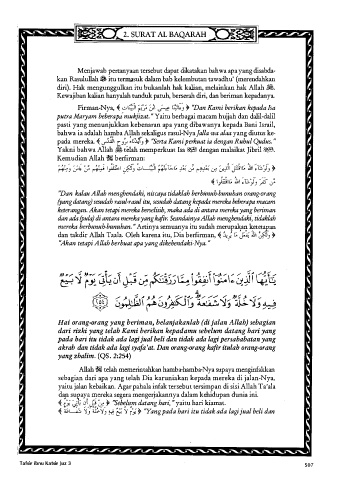 2. SURAT AL BAQARAH
Menjawab pertanyaan tersebut dapat dikatakan bahwa apa yang disabda-
kan Rasulullah ﷺ itu termasuk dalam bab kelembutan tawadhu' (merendahkan
diri). Hak mengunggulkan itu bukanlah hak kalian, melainkan hak Allah ﷻ.
Kewajiban kalian hanyalah tunduk patuh, berserah diri, dan beriman kepadanya.
Firman-Nya, ﴿ وَءَاتَيْنَا عِيسَى ابْنَ مَرْيَمَ الْبَيِّنَاتِ ﴾ "Dan Kami berikan kepada Isa
putra Maryam beberapa mukjizat." Yaitu berbagai macam hujjah dan dalil-dalil
pasti yang menunjukkan kebenaran apa yang dibawanya kepada Bani Israil,
bahwa ia adalah hamba Allah sekaligus rasul-Nya Jalla wa alaa yang diutus ke-
pada mereka. ﴿ وَأَيَّدْنَاهُ بِرُوحِ الْقُدُسِ ﴾ "Serta Kami perkuat ia dengan Ruhul Qudus."
Yakni bahwa Allah ﷻ telah memperkuat Isa dengan malaikat Jibril.
Kemudian Allah ﷻ berfirman:
﴿ وَلَوْ شَاءَ اللَّهُ مَا اقْتَتَلَ الَّذِينَ مِن بَعْدِهِم مِّن بَعْدِ مَا جَاءَتْهُمُ الْبَيِّنَاتُ وَلَكِنِ اخْتَلَفُوا فَمِنْهُم مَّنْ ءَامَنَ وَمِنْهُم
مَّن كَفَرَ وَلَوْ شَاءَ اللَّهُ مَا اقْتَتَلُوا ﴾
"Dan kalau Allah menghendaki, niscaya tidaklah berbunuh-bunuhan orang-orang
(yang datang) sesudah rasul-rasul itu, sesudah datang kepada mereka beberapa macam
keterangan. Akan tetapi mereka berselisih, maka ada di antara mereka yang beriman
dan ada (pula) di antara mereka yang kafir. Seandainya Allah menghendaki, tidaklah
mereka berbunuh-bunuhan." Artinya semuanya itu sudah merupakan ketetapan
dan takdir Allah Ta'ala. Oleh karena itu, Dia berfirman, ﴿ وَلَكِنَّ اللَّهَ يَفْعَلُ مَا يُرِيدُ ﴾
"Akan tetapi Allah berbuat apa yang dikehendaki-Nya."
يَٰٓأَيُّهَا ٱلَّذِينَ ءَامَنُوٓا۟ أَنفِقُوا۟ مِمَّا رَزَقْنَٰكُم مِّن قَبْلِ أَن يَأْتِىَ يَوْمٌ لَّا بَيْعٌ
فِيهِ وَلَا خُلَّةٌ وَلَا شَفَٰعَةٌ وَٱلْكَٰفِرُونَ هُمُ ٱلظَّٰلِمُونَ ﴿٢٥٤﴾
Hai orang-orang yang beriman, belanjakanlah (di jalan Allah) sebagian
dari rizki yang telah Kami berikan kepadamu sebelum datang hari yang
pada hari itu tidak ada lagi jual beli dan tidak ada lagi persahabatan yang
akrab dan tidak ada lagi syafa'at. Dan orang-orang kafir itulah orang-orang
yang zhalim. (QS. 2:254)
Allah ﷻ telah memerintahkan hamba-hamba-Nya supaya menginfakkan
sebagian dari apa yang telah Dia karuniakan kepada mereka di jalan-Nya,
yaitu jalan kebaikan. Agar pahala infak tersebut tersimpan di sisi Allah Ta'ala
dan supaya mereka segera mengerjakannya dalam kehidupan dunia ini.
﴿ مِن قَبْلِ أَن يَأْتِيَ يَوْمٌ ﴾ "Sebelum datang hari," yaitu hari kiamat.
﴿ يَوْمٌ لَا بَيْعٌ فِيهِ وَلَا خُلَّةٌ وَلَا شَفَاعَةٌ ﴾ "Yang pada hari itu tidak ada lagi jual beli dan
Tafsir Ibnu Katsir Juz 3
507